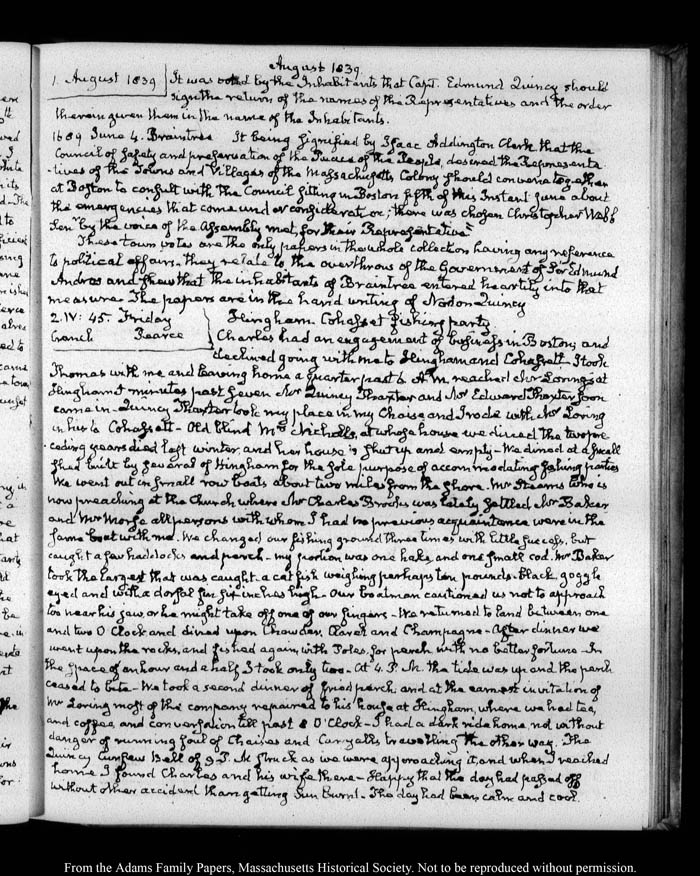 August 1839
1. August 1839 It was voted by the Inhabitants that Capt. Edmund Quincy should
sign the return of the names of the Representatives and the order
therein given them in the name of the Inhabitants.
1689 June 4. Braintree It being signified by Isaac Addington Clerk that the
Council of safety and preservation of the Peace of the People, desired the Representa-
-tives of the Towns and Villages of the Massachusetts Colony should convene together
at Boston to consult with the Council sitting in Boston fifth of this Instant June about
the emergencies that come under consideration; there was chosen Christopher Webb
Senr. by the voice of the Assembly met, for their Representative
These town votes are the only papers in the whole collection having any reference
to political affairs. they relate to the overthrow of the Government of Sir Edmund
Andros and shew that the inhabitants of Braintree entered heartily into that
measure. The papers are in the hand writing of Norton Quincy
2. IV: 45. Friday Hingham. Cohasset fishing party
Cranch Pearce Charles had an engagement of business in Boston, and
declined going with me to Hingham and Cohassett. I took
Thomas with me and leaving home a quarter past 6 A.M. reached Mr Lorings at
Hingham minutes past seven Mr Quincy Thaxter and Mr Edward Thaxter soon
came in. Quincy Thaxter took my place in my Chaise and I rode with Mr Loring
in his to Cohassett. Old blind Mrs Nicholls, at whose house we dined the two pre-
ceding years died last winter, and her house is shut up and empty. We dined at a small
shed built by several of Hingham for the sole purpose of accommodating fishing parties
We went out in small row boats about two miles from the shore. Mr Stearns who is
now preaching at the Church where Mr Charles Brooks was lately settled Mr Baker
and Mr Morse all persons with whom I had no previous acquaintance were in the
same boat with me. We changed our fishing ground three times with little success, but
caught a few haddocks and perch. my portion was one hake and one small cod. Mr Baker
took the largest that was caught. a cat fish weighing perhaps ten pounds. black, goggle
eyed and with a dorsal fin six inches high. Our boatman cautioned us not to approach
too near his jaw or he might take off one of our fingers. We returned to land between one
and two O'Clock and dined upon Chowder, Claret and Champagne. After dinner we
went upon the rocks, and fished again, with Poles, for perch with no better fortune. In
the space of an hour and a half I took only two. At 4. P.M. the tide was up and the perch
ceased to bite. We took a second dinner of fried perch, and at the earnest invitation of
Mr Loring most of the company repaired to his house at Hingham, where we had tea,
and coffee, and conversation till past 8 O'Clock. I had a dark ride home, not without
danger of running foul of Chaises and Carryalls travelling the other way. The
Quincy curfew bell of 9 P.M. struck as we were approaching it, and when I reached
home I found Charles and his wife there. Happy that the day had passed off
without other accident than getting Sun burnt. The day had been calm and cool.
From the Adams Family Papers, Massachusetts Historical Society. Not to be reproduced without permission.